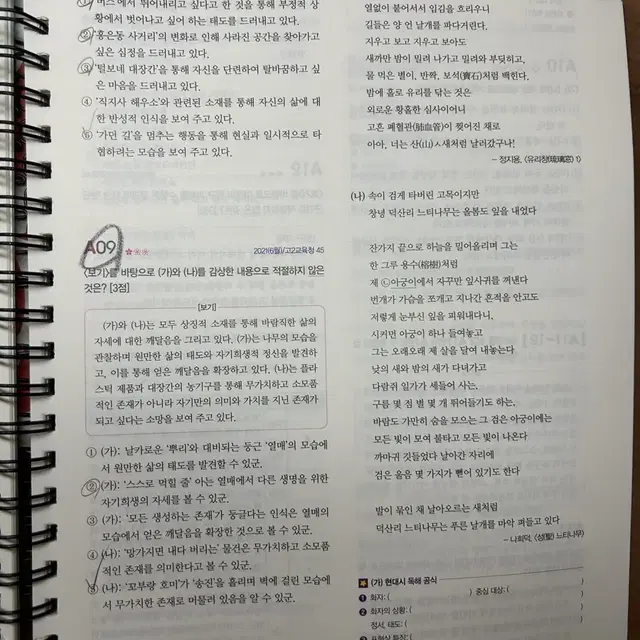 ① '버스'에서 뛰어내리고 싶다고 한 것을 통해 부정적 상
황에서 벗어나고 싶어 하는 태도를 드러내고 있다.
② '홍은동 사거리'의 변화로 인해 사라진 공간을 찾아가고
싶은 심정을 드러내고 있다.
③ '털보네 대장간'을 통해 자신을 단련하여 탈바꿈하고 싶
은 마음을 드러내고 있다.
④ '직지사 해우소'와 관련된 소재를 통해 자신의 삶에 대
한 반성적 인식을 보여 주고 있다.
⑤ '가던 길'을 멈추는 행동을 통해 현실과 일시적으로 타
협하려는 모습을 보여 주고 있다.
A09
2021(6월)/고2교육청 45
<보기>를 바탕으로 (가)와 (나)를 감상한 내용으로 적절하지 않은
것은? [3점]
[보기]
(가)와 (나)는 모두 상징적 소재를 통해 바람직한 삶의
자세에 대한 깨달음을 그리고 있다. (가)는 나무의 모습을
관찰하며 원만한 삶의 태도와 자기희생적 정신을 발견하
고, 이를 통해 얻은 깨달음을 확장하고 있다. (나)는 플라
스틱 제품과 대장간의 농기구를 통해 무가치하고 소모품
적인 존재가 아니라 자기만의 의미와 가치를 지닌 존재가
되고 싶다는 소망을 보여 주고 있다.
① (가): 날카로운 '뿌리'와 대비되는 둥근 '열매'의 모습에
서 원만한 삶의 태도를 발견할 수 있군.
② (가): '스스로 먹힐 줄' 아는 열매에서 다른 생명을 위한
자기희생의 자세를 볼 수 있군.
③ (가): '모든 생성하는 존재'가 둥글다는 인식은 열매의
모습에서 얻은 깨달음을 확장한 것으로 볼 수 있군.
④ (나): '망가지면 내다 버리는' 물건은 무가치하고 소모품
적인 존재를 의미한다고 볼 수 있군.
⑤ (나): '꼬부랑 호미'가 '송진'을 흘리며 벽에 걸린 모습에
서 무가치한 존재로 머물러 있음을 알 수 있군.
열없이 붙어서서 입김을 흐리우니
길들은 양 언 날개를 파다거린다.
지우고 보고 지우고 보아도
새까만 밤이 밀려 나가고 밀려와 부딪히고,
물 먹은 별이, 반짝, 보석(寶石)처럼 백힌다.
밤에 홀로 유리를 닦는 것은
외로운 황홀한 심사이어니
고흔 폐혈관(肺血管)이 찢어진 채로
아아, 너는 산(山)ㅅ새처럼 날러갔구나!
- 정지용, 〈유리창(琉璃窓) 1〉
(나) 속이 검게 타버린 고목이지만
창녕 덕산리 느티나무는 올봄도 잎을 내었다
잔가지 끝으로 하늘을 밀어올리며 그는
한 그루 용수(榕樹)처럼
제 ㉡아궁이에서 자꾸만 잎사귀를 꺼낸다
번개가 가슴을 쪼개고 지나간 흔적을 안고도
저렇게 눈부신 잎을 피워내다니,
시커먼 아궁이 하나 들여놓고
그는 오래오래 제 살을 달여 내놓는다
낮의 새와 밤의 새가 다녀가고
다람쥐 일가가 세들어 사는,
구름 몇 점 별 몇 개 뛰어들기도 하는,
바람도 가만히 숨을 모으는 그 검은 아궁이에는
모든 빛이 모여 불타고 모든 빛이 나온다
까마귀 깃들었다 날아간 자리에
검은 울음 몇 가지가 뻗어 있기도 한다
발이 묶인 채 날아오르는 새처럼
덕산리 느티나무는 푸른 날개를 마악 펴들고 있다
- 나희덕, 〈성(聖) 느티나무〉
(가) 현대시 독해 공식
❶ 화자: ( ) 중심 대상: ( )
❷ 화자의 상황: ( )
정서, 태도: ( )
❸ 표현상 특징: (